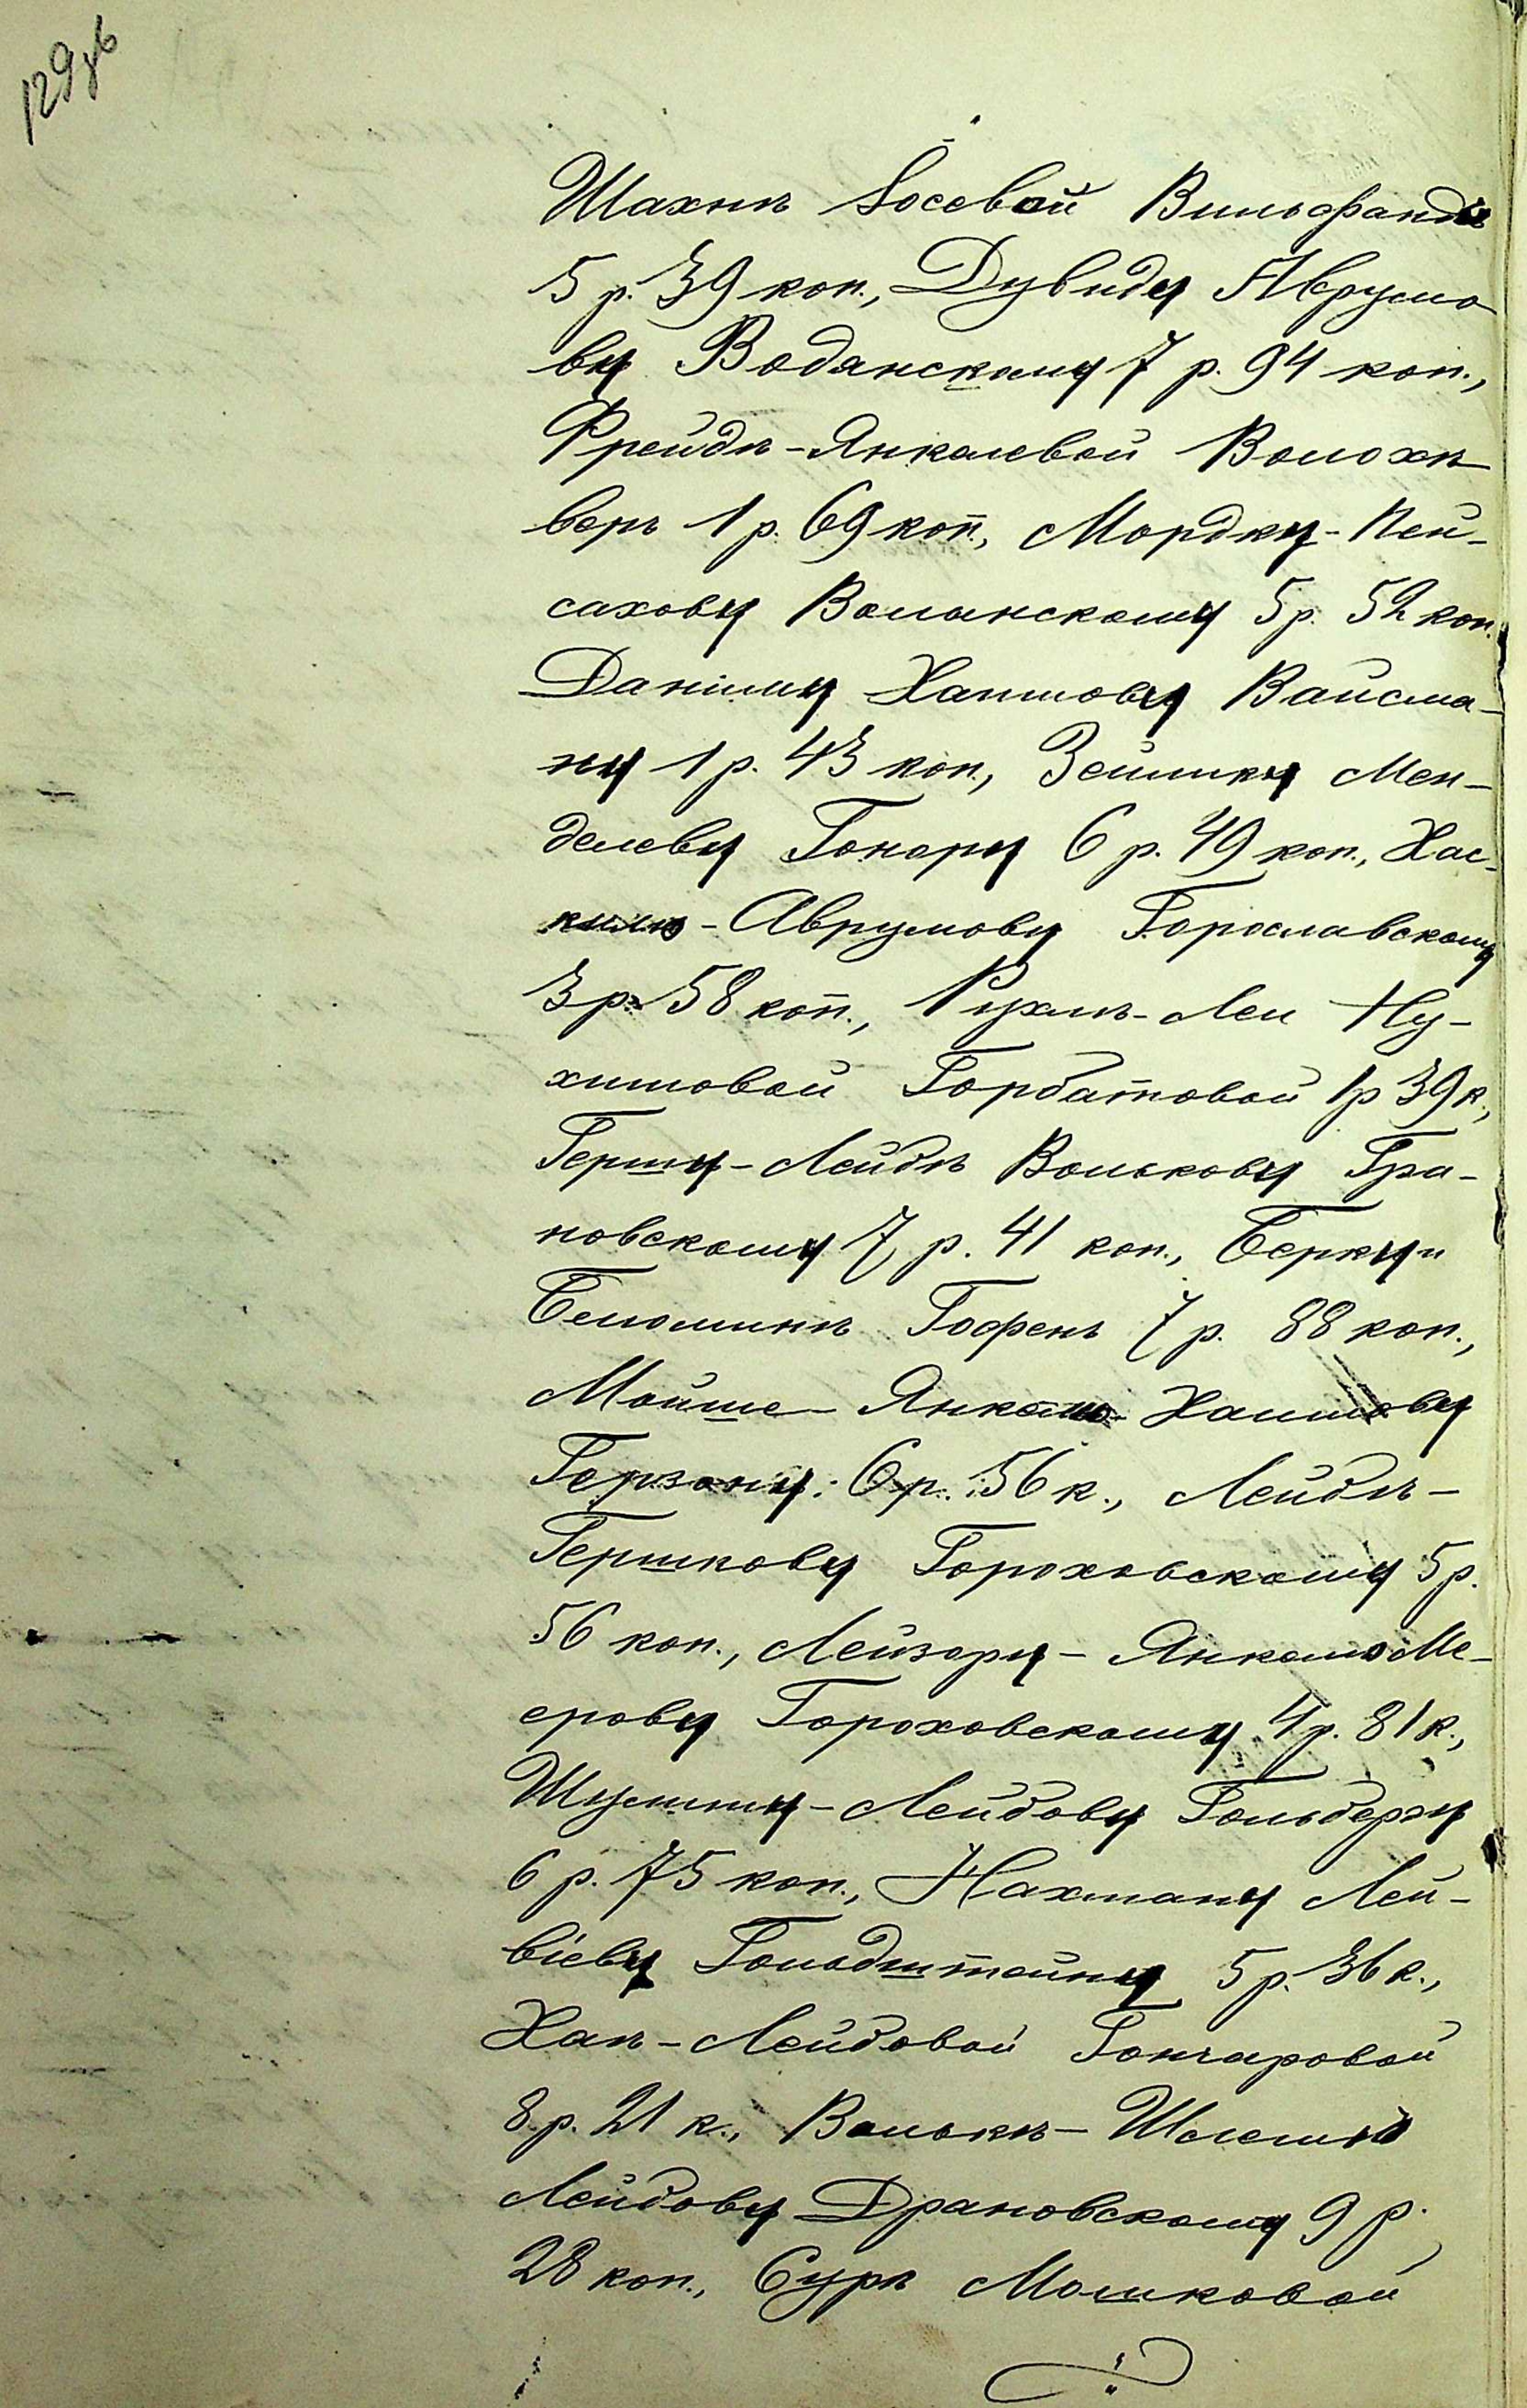 129 зв
Шахнѣ Іосевой Вильфандъ
5 р. 39 коп., Дувиду Аврумо-
ву Водянскому 7 р. 94 коп.,
Фрейдѣ-Янкелевой Волохъ-
веръ 1 р. 69 коп., Мордку-Пей-
сахову Волынскому 5 р. 52 коп.
Данiилу Хаимову Вайсма-
ну 1 р. 43 коп., Зейлику Мен-
делеву Гонору 6 р. 49 коп., Хас-
килю-Аврумову Гораславскому
3 р. 58 коп., Рухлѣ-Леи Ну-
химовой Горбатовой 1 р 39 к.,
Гершу-Лейбѣ Волькову Гра-
новскому 7 р. 41 коп., Берку и
Беломинѣ Гофенъ 7 р. 88 коп.,
Мойше-Янкелю Хаимову
Герзону 6 р. 56 к., Лейбѣ-
Гершкову Гороховскому 5 р.
56 коп., Лейзеру-Янкелю Ме-
ерову Гороховскому 4 р. 81 к.,
Шулиму-Лейбову Гольбергу
6 р. 75 коп., Нахману Лей-
вiеву Гольдштейну 5 р. 36 к.,
Хаѣ-Лейбовой Гончаровой
8 р. 21 к., Волькѣ-Шлемѣ
Лейбову Драновскому 9 р.
28 коп., Сурѣ Мошковой